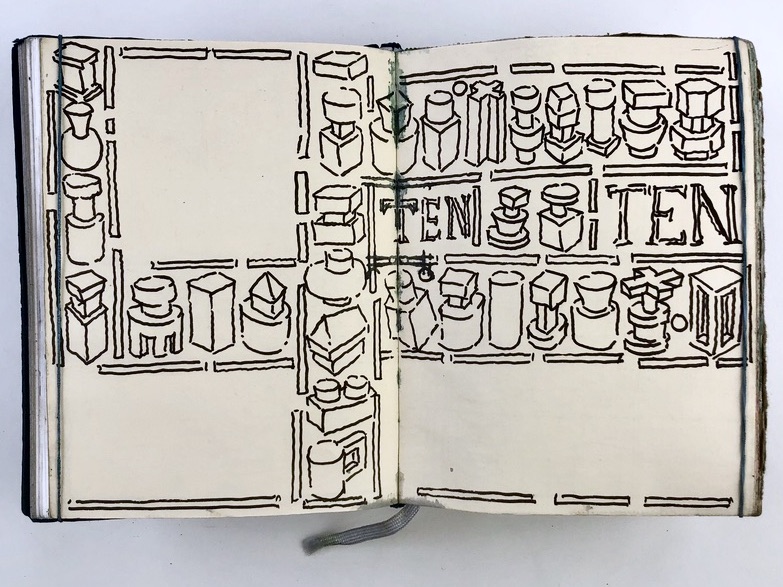 TEN TEN